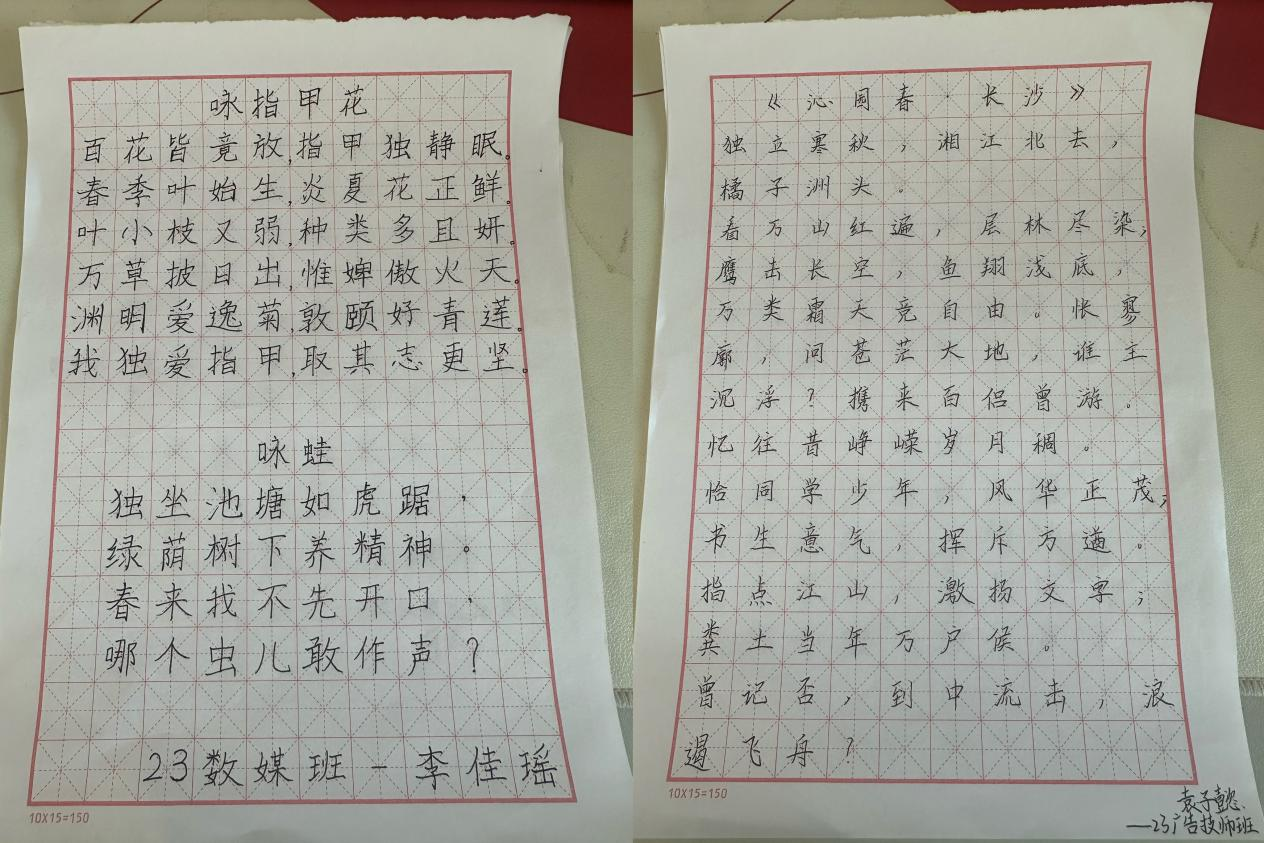 咏指甲花
百花皆竟放,指甲独静眠。
春季叶始生,炎夏花正鲜。
叶小枝又弱,种类多且妍。
万草披日出,惟婢傲火天。
渊明爱逸菊,敦颐好青莲。
我独爱指甲,取其志更坚。
咏蛙
独坐池塘如虎踞，
绿荫树下养精神。
春来我不先开口，
哪个虫儿敢作声？
23数媒班-李佳瑶
10X15=150
《沁园春·长沙》
独立寒秋，湘江北去，
橘子洲头。
看万山红遍，层林尽染；
鹰击长空，鱼翔浅底，
万类霜天竞自由。怅寥
廓，问苍茫大地，谁主
沉浮？携来百侣曾游。
忆往昔峥嵘岁月稠。
恰同学少年，风华正茂；
书生意气，挥斥方遒。
指点江山，激扬文字；
粪土当年万户侯。
曾记否，到中流击，浪
遏飞舟？
10X15=150
袁子懿
——23广告技师班